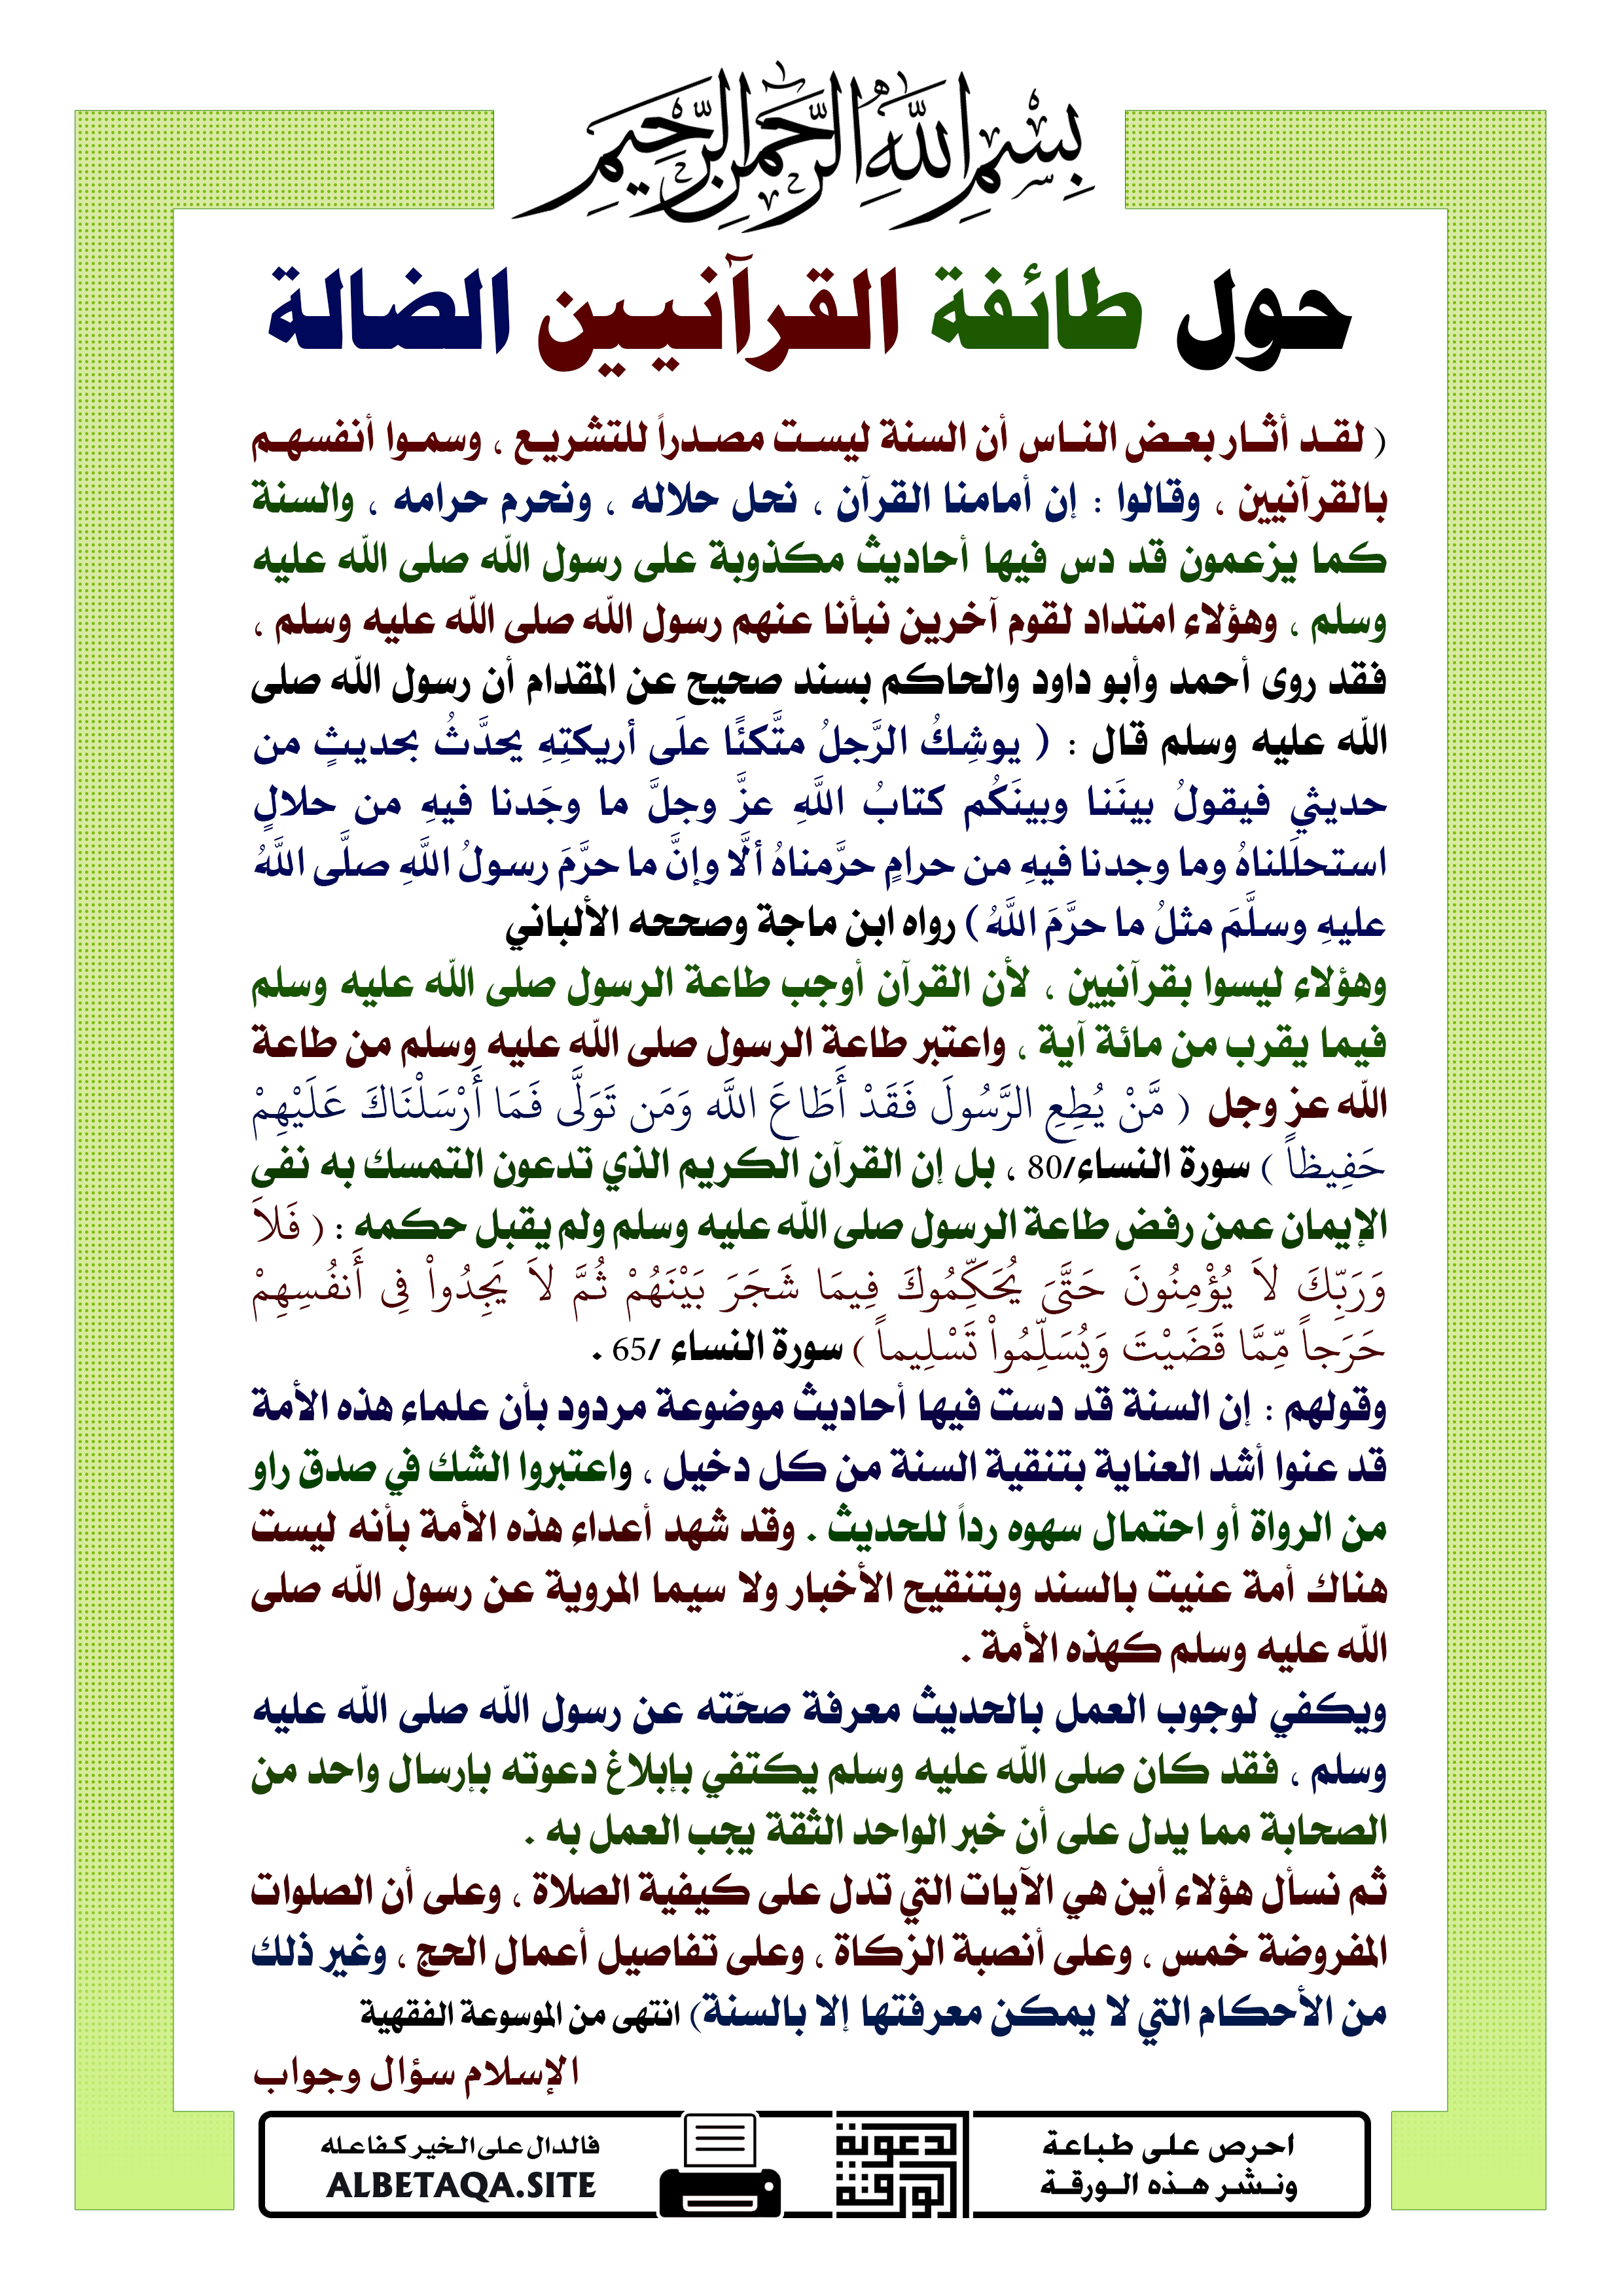 بِسْمِ اللَّهِ الرَّحْمَٰنِ الرَّحِيمِ
حول طائفة القرآنيين الضالة
( لقد أثار بعض الناس أن السنة ليست مصدراً للتشريع ، وسموا أنفسهم
بالقرآنيين ، وقالوا : إن أمامنا القرآن ، نحل حلاله ، ونحرم حرامه ، والسنة
كما يزعمون قد دس فيها أحاديث مكذوبة على رسول الله صلى الله عليه
وسلم ، وهؤلاء امتداد لقوم آخرين نبأنا عنهم رسول الله صلى الله عليه وسلم ،
فقد روى أحمد وأبو داود والحاكم بسند صحيح عن المقدام أن رسول الله صلى
الله عليه وسلم قال : ( يوشِكُ الرَّجلُ متَّكئًا علَى أريكتِهِ يحدَّثُ بحديثٍ من
حديثي فيقولُ بينَنا وبينَكُم كتابُ اللَّهِ عزَّ وجلَّ ما وجَدنا فيهِ من حلالٍ
استحلَلناهُ وما وجدنا فيهِ من حرامٍ حرَّمناهُ ألَّا وإنَّ ما حرَّمَ رسولُ اللَّهِ صلَّى اللَّهُ
عليهِ وسلَّمَ مثلُ ما حرَّمَ اللَّهُ ) رواه ابن ماجة وصححه الألباني
وهؤلاء ليسوا بقرآنيين ، لأن القرآن أوجب طاعة الرسول صلى الله عليه وسلم
فيما يقرب من مائة آية ، واعتبر طاعة الرسول صلى الله عليه وسلم من طاعة
الله عز وجل ( مَّنْ يُطِعِ الرَّسُولَ فَقَدْ أَطَاعَ اللَّه وَمَن تَوَلَّى فَمَا أَرْسَلْنَاكَ عَلَيْهِمْ
حَفِيظاً ) سورة النساء/80 ، بل إن القرآن الكريم الذي تدعون التمسك به نفى
الإيمان عمن رفض طاعة الرسول صلى الله عليه وسلم ولم يقبل حكمه : ( فَلاَ
وَرَبِّكَ لاَ يُؤْمِنُونَ حَتَّىَ يُحَكِّمُوكَ فِيمَا شَجَرَ بَيْنَهُمْ ثُمَّ لاَ يَجِدُواْ فِى أَنفُسِهِمْ
حَرَجاً مِّمَّا قَضَيْتَ وَيُسَلِّمُواْ تَسْلِيماً ) سورة النساء /65 .
وقولهم : إن السنة قد دست فيها أحاديث موضوعة مردود بأن علماء هذه الأمة
قد عنوا أشد العناية بتنقية السنة من كل دخيل ، واعتبروا الشك في صدق راو
من الرواة أو احتمال سهوه رداً للحديث . وقد شهد أعداء هذه الأمة بأنه ليست
هناك أمة عنيت بالسند وبتنقيح الأخبار ولا سيما المروية عن رسول الله صلى
الله عليه وسلم كهذه الأمة .
ويكفي لوجوب العمل بالحديث معرفة صحّته عن رسول الله صلى الله عليه
وسلم ، فقد كان صلى الله عليه وسلم يكتفي بإبلاغ دعوته بإرسال واحد من
الصحابة مما يدل على أن خبر الواحد الثقة يجب العمل به .
ثم نسأل هؤلاء أين هي الآيات التي تدل على كيفية الصلاة ، وعلى أن الصلوات
المفروضة خمس ، وعلى أنصبة الزكاة ، وعلى تفاصيل أعمال الحج ، وغير ذلك
من الأحكام التي لا يمكن معرفتها إلا بالسنة) انتهى من الموسوعة الفقهية
الإسلام سؤال وجواب
احرص على طباعة
ونشر هذه الورقة
الدعوية
الورقة
فالدال على الخير كفاعله
ALBETAQA.SITE